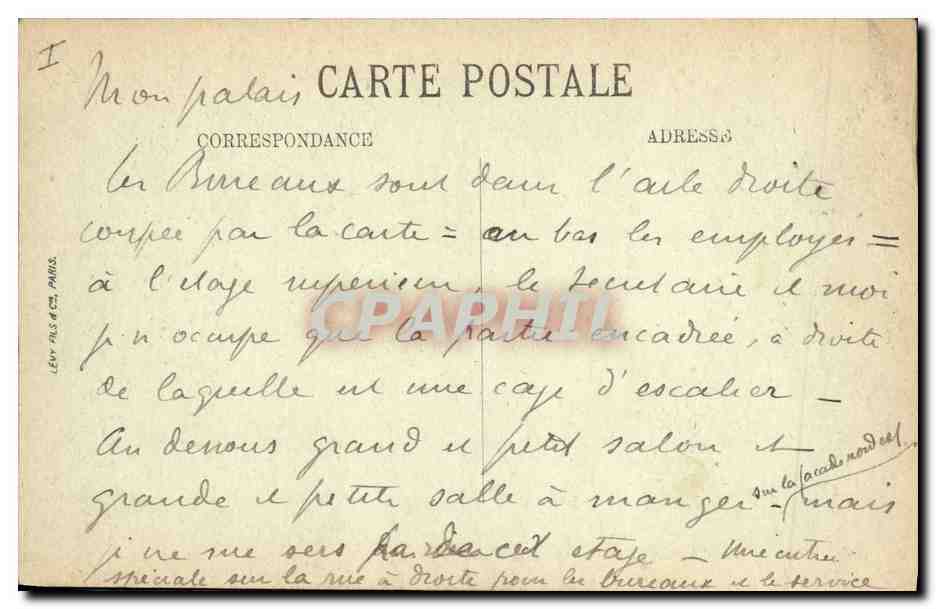 I
Mon palais
CARTE POSTALE
CORRESPONDANCE
ADRESSE
Les Bureaux sont dans l'aile droite
coupée par la carte = au bas les employés =
à l'étage supérieur, le secrétaire et moi
CPAPHIL
je n'occupe que la partie encadrée, à droite
de laquelle est une cage d'escalier –
Au dessous grand et petit salon et
sur la façade nord est
grande et petite salle à manger – mais
je ne me sers de cet étage – Une entrée
spéciale sur la rue à droite pour les bureaux et le service
LÉVY FILS & Cie, PARIS.